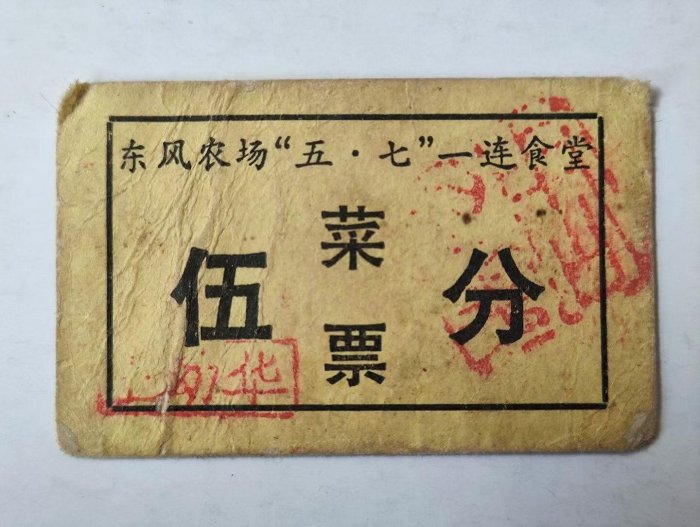 东风农场“五·七”一连食堂
菜票
伍分
华